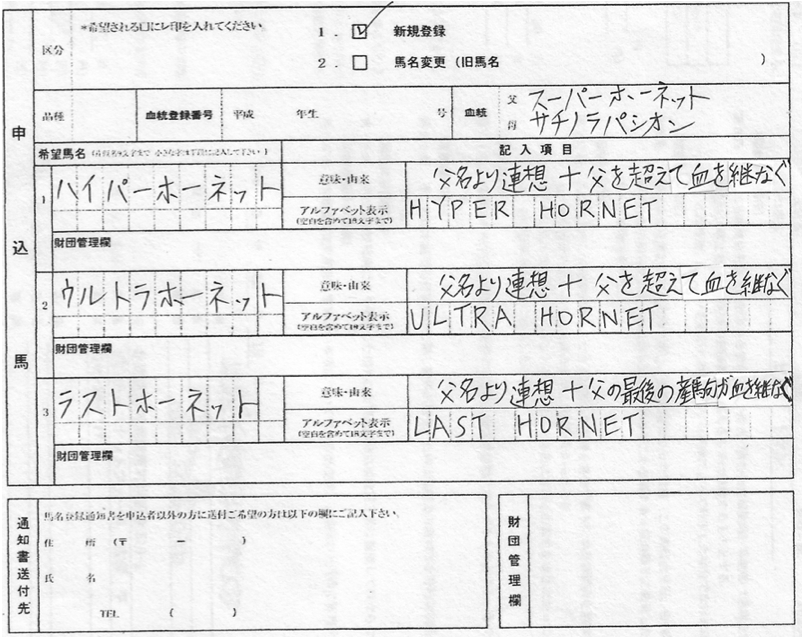 *希望される口にレ印を入れてください
区分
1. ☑ 新規登録
2. □ 馬名変更 (旧馬名 )
申込馬
品種 血統登録番号 平成 年生 号 血統 父 スーパーホーネット
母 サチノラパシオン
希望馬名 記入項目
1 ハイパーホーネット 意味・由来 父名より連想+父を超えて血を継なぐ
アルファベット表示 (空白を含めて18文字まで) HYPER HORNET
財団管理欄
2 ウルトラホーネット 意味・由来 父名より連想+父を超えて血を継なぐ
アルファベット表示 (空白を含めて18文字まで) ULTRA HORNET
財団管理欄
3 ラストホーネット 意味・由来 父名より連想+父の最後の産駒が血を継なぐ
アルファベット表示 (空白を含めて18文字まで) LAST HORNET
財団管理欄
通知書送付先
馬名登録通知書を申込者以外の方に送付ご希望の方は以下の欄にご記入下さい。
住 所 (〒 － )
氏 名
TEL ( )
財団管理欄